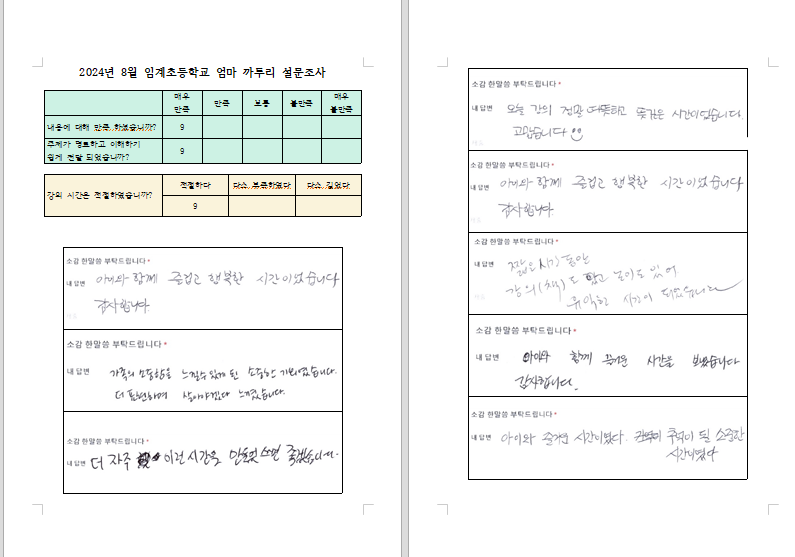 2024년 8월 임계초등학교 엄마 까투리 설문조사
매우 만족 만족 보통 불만족 매우 불만족
내용에 대해 만족 하셨습니까? 9
주제가 명료하고 이해하기
쉽게 전달 되었습니까? 9
강의 시간은 적절하였습니까? 적절하다 다소 부족하였다 다소 길었다
9
소감 한말씀 부탁드립니다 *
내 답변 아이와 함께 즐겁고 행복한 시간이었습니다
감사합니다.
소감 한말씀 부탁드립니다 *
내 답변 가족의 소중함을 느낄수 있게 된 소중한 기회였습니다.
더 표현하며 살아야겠다 느꼈습니다.
소감 한말씀 부탁드립니다 *
내 답변 더 자주 이런 시간을 만들었으면 좋겠습니다.
소감 한말씀 부탁드립니다 *
내 답변 오늘 강의 정말 따뜻하고 뜻깊은 시간이었습니다.
고맙습니다
소감 한말씀 부탁드립니다 *
내 답변 아이와 함께 즐겁고 행복한 시간이었습니다
감사합니다.
소감 한말씀 부탁드립니다 *
내 답변 짧은 시간 동안
강의(책)도 듣고 놀이도 있어
유익한 시간이 되었습니다
소감 한말씀 부탁드립니다 *
내 답변 아이와 함께 즐거운 시간을 보냈습니다
감사합니다.
소감 한말씀 부탁드립니다 *
내 답변 아이와 즐거운 시간이였다. 추억이 될 소중한
시간이였다